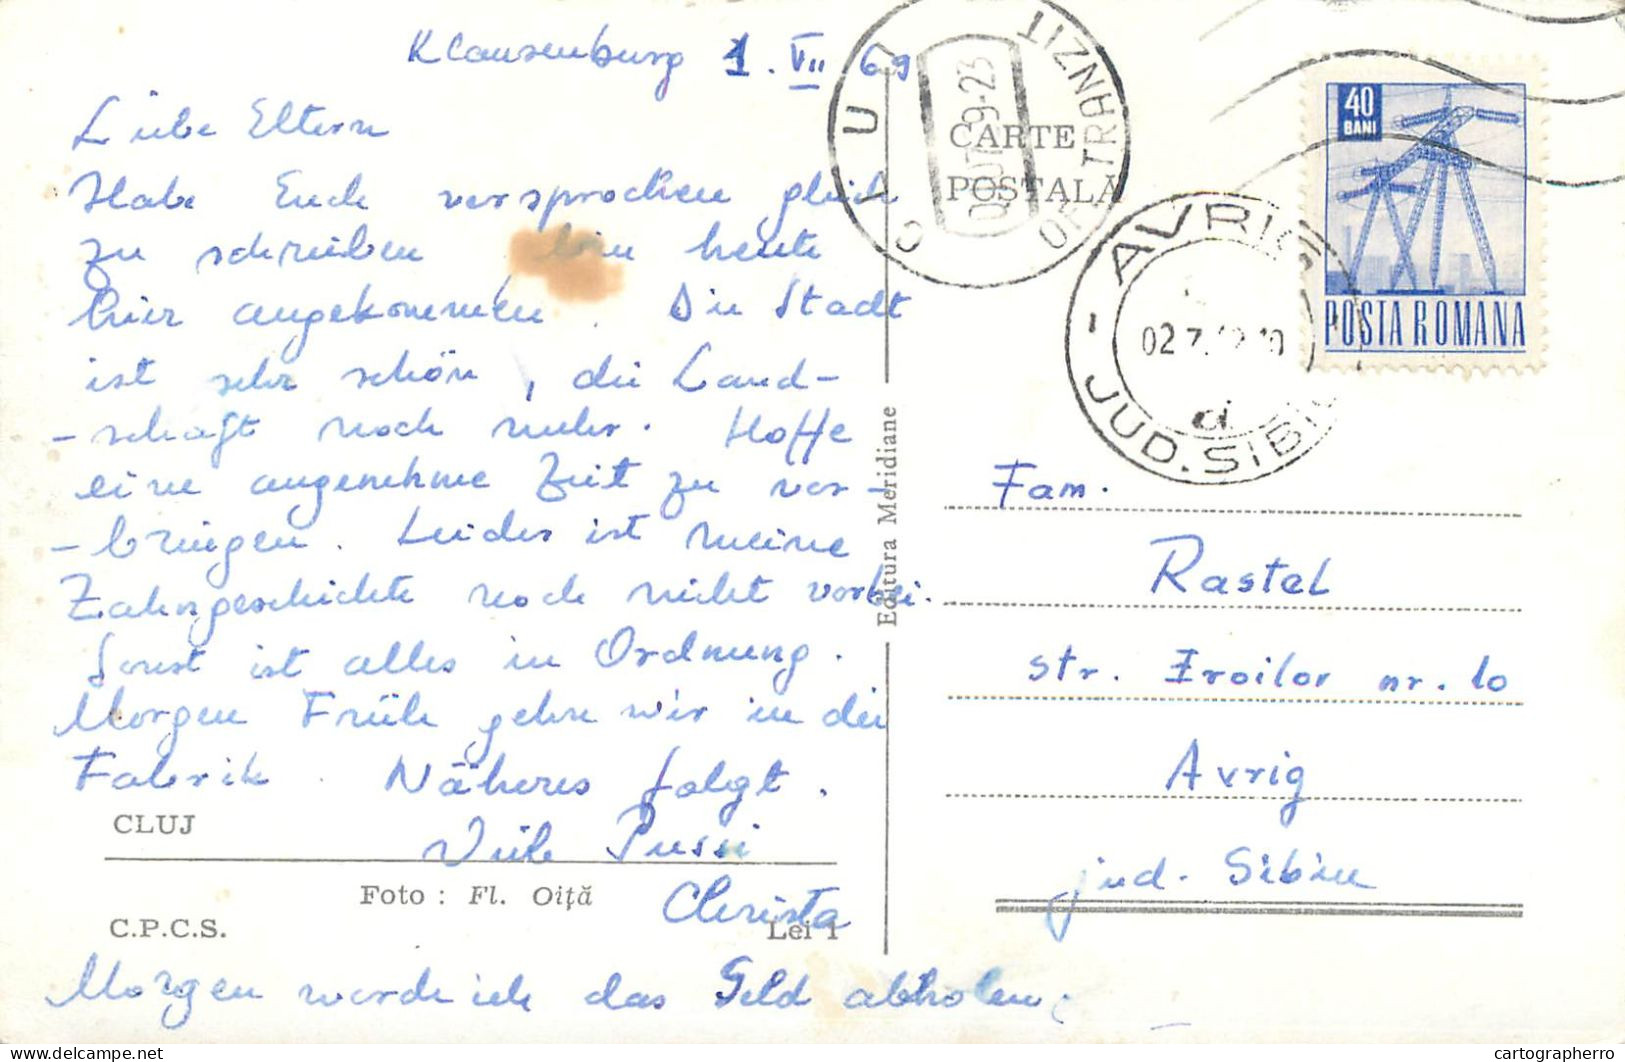 Klausenburg 1. VII 69
Liebe Eltern
Habe Euch versprochen gleich
zu schreiben bin heute
hier angekommen. Die Stadt
ist sehr schön, die Land-
-schaft noch mehr. Hoffe
eine angenehme Zeit zu ver-
-bringen. Leider ist meine
Zahngeschichte noch nicht vorbei.
Sonst ist alles in Ordnung.
Morgen Früh gehn wir in die
Fabrik. Näheres folgt.
Viele Pussi
Christa
Morgen werde ich das Geld abholen.
CLUJ
Foto : Fl. Oiță
C.P.C.S.
Lei 1
Editura Meridiane
CARTE
POSTALĂ
CLUJ
TRANZIT
9-23
AVRIG
02.7.
JUD. SIBIU
40
BANI
POSTA ROMANA
Fam.
Rastel
str. Eroilor nr. 10
Avrig
jud. Sibiu
delcampe.net
cartographerro